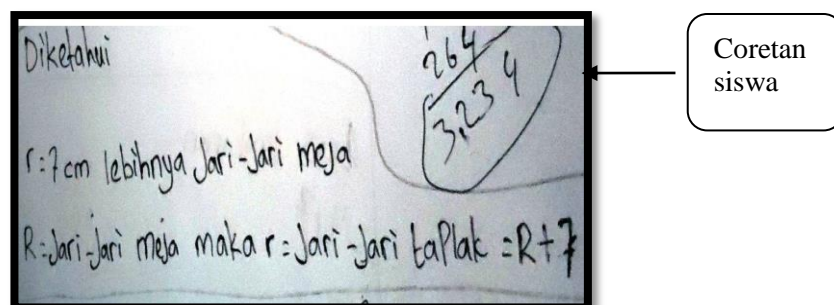 Diketahui
264
3.234
r = 7 cm lebihnya Jari-Jari meja
R = Jari-Jari meja maka r = Jari-Jari taPlak = R + 7
Coretan
siswa